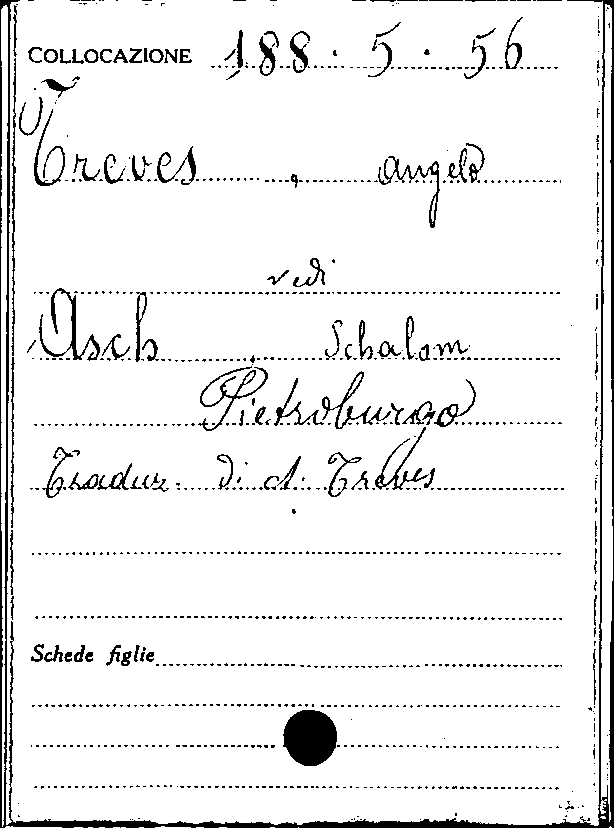 COLLOCAZIONE 188. 5. 56
Treves, Angelo
vedi
Asch Schalom
Pietroburgo
Traduz. di A. Treves
Schede figlie